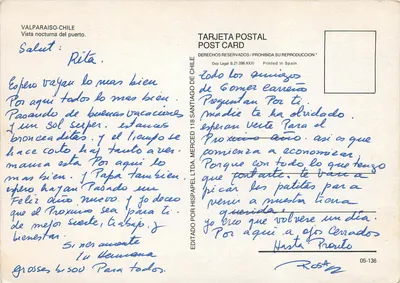 VALPARAISO-CHILE
Vista nocturna del puerto.
Salut:
Rita.
Espero vayan lo mas bien
Por aqui todos lo mas bien.
Pasando de buenas vacaciones
y un sol super. estamos
bronceaditas. y el tiempo se
hace corto hay tanto a ver.
manuca esta Por aqui lo
mas bien. y Papá tambien.
espero hayan Pasado un
Feliz año nuevo. y yo deceo
que el Proximo sea para ti.
de mejor suerte, trabajo, y
bienestar.
Sinceramente
tu Hermana
grosses bisou Para todos.
TARJETA POSTAL
POST CARD
DERECHOS RESERVADOS - PROHIBIDA SU REPRODUCCION
Dep. Legal B.21.098-XXIII Printed in Spain.
EDITADO POR HISPAPEL LTDA. MERCED 118 SANTIAGO DE CHILE
todo los amigos
de Gomez Carreño
Preguntan Por ti.
nadie te ha olvidado.
esperan verte Para el
Proximo año. asi es que
comienza a economicar
Porque con todo lo que tengo
que te van a
picar les patites para
venir a nuestra tierra
querida.
yo creo que volvere un dia.
Por aqui a ojos cerrados
Hasta Pronto
Rosa
05-136